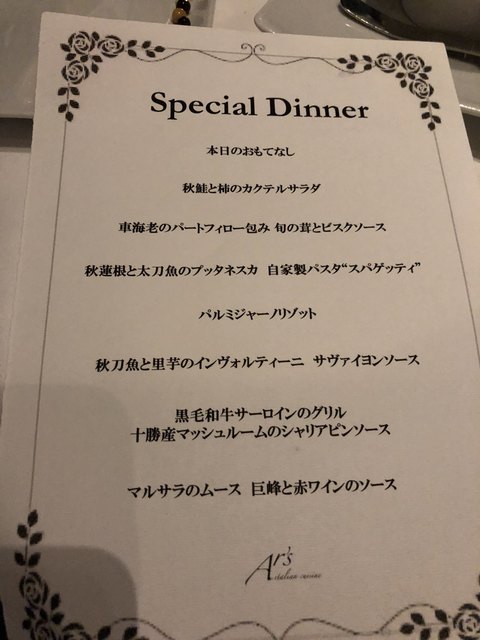 Special Dinner
本日のおもてなし
秋鮭と柿のカクテルサラダ
車海老のパートフィロー包み 旬の茸とビスクソース
秋蓮根と太刀魚のプッタネスカ 自家製パスタ“スパゲッティ”
パルミジャーノリゾット
秋刀魚と里芋のインヴォルティーニ サヴァイヨンソース
黒毛和牛サーロインのグリル
十勝産マッシュルームのシャリアピンソース
マルサラのムース 巨峰と赤ワインのソース
Ar's
italian cuisine